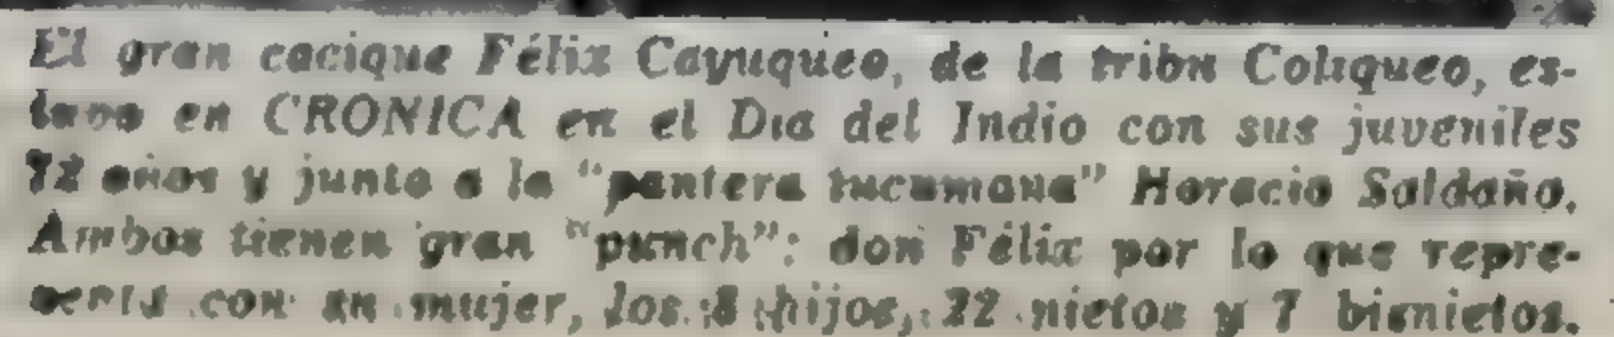 El gran cacique Félix Cayuqueo, de la tribu Coliqueo, es-
tuvo en CRONICA en el Dia del Indio con sus juveniles
72 años y junto a la "pantera tucumana" Horacio Saldaño.
Ambos tienen gran "punch": don Félix por lo que repre-
senta con su mujer, los 8 hijos, 22 nietos y 7 bisnietos.